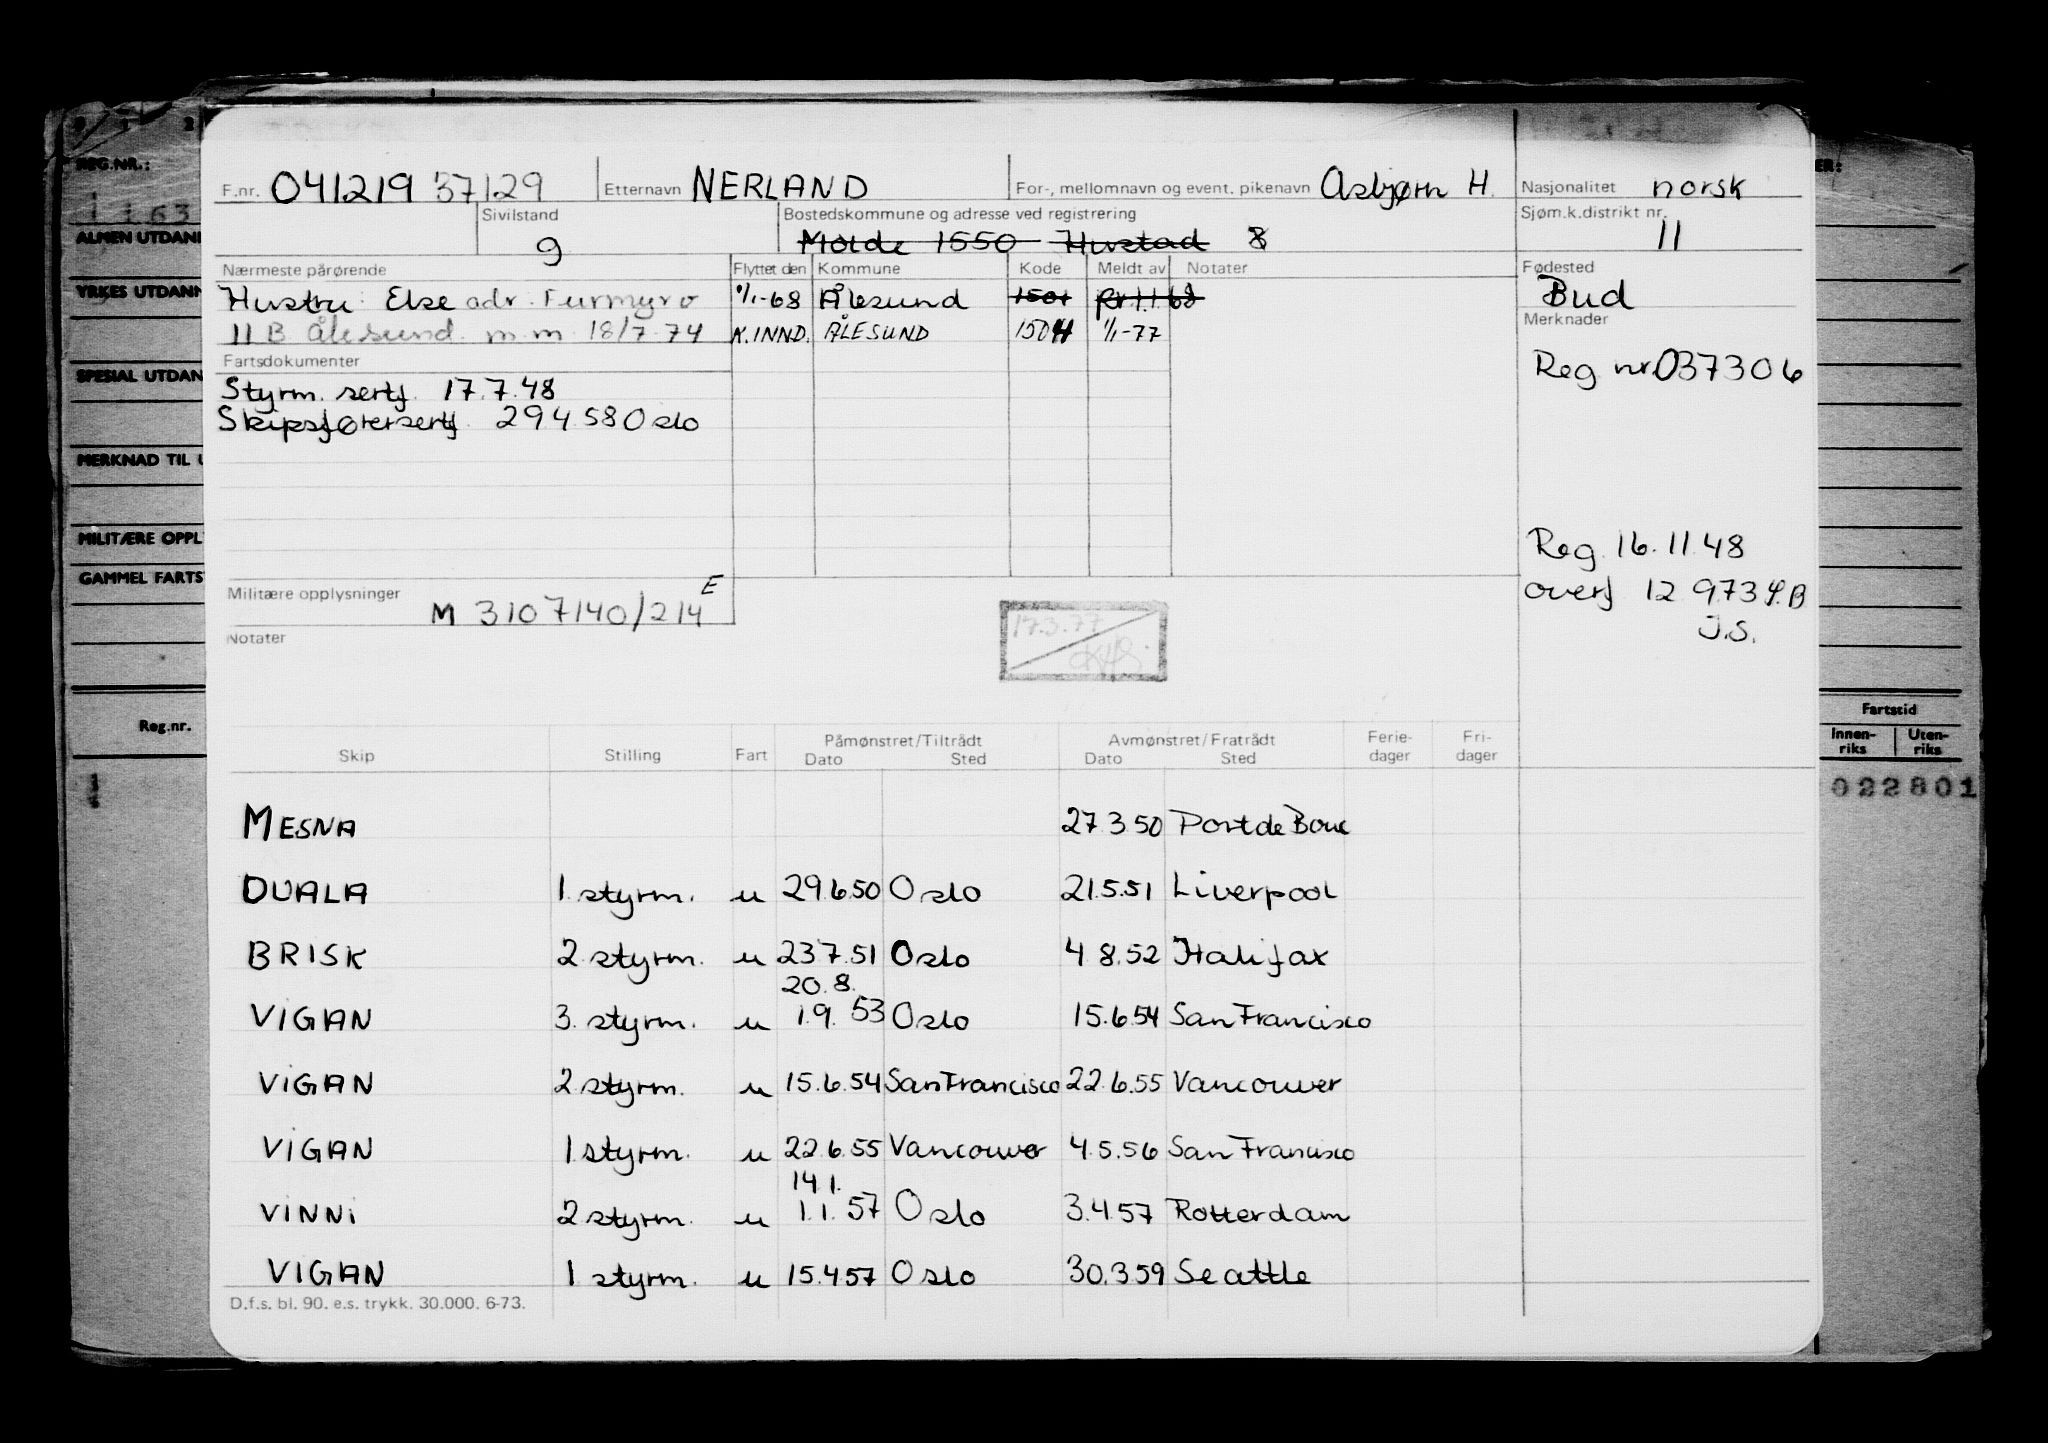 F.nr. 041219 37129 Etternavn NERLAND For-, mellomnavn og event. pikenavn Asbjørn H. Nasjonalitet norsk
Sivilstand g Bostedskommune og adresse ved registrering Molde 1550 Hustad Sjøm.k.distrikt nr. 11
Nærmeste pårørende Flyttet den Kommune Kode Meldt av Notater Fødested
Hustru: Else adr. Furmyrv 1/1-68 Ålesund 1501 Bud
11 B Ålesund. m.m 18/7-74 K.INND. ÅLESUND 1504 1/1-77 Merknader
Fartsdokumenter Reg nr. 037306
Styrm. sertf. 17.7.48
Skipsførersertf. 29 4.58 Oslo
Reg. 16.11.48
Militære opplysninger M 3107140/214 E overf 12 9.73
J.S.
Notater
17.3.77
Skip Stilling Fart Påmønstret/Tiltrådt Dato Sted Avmønstret/Fratrådt Dato Sted Ferie-dager Fri-dager
MESNA 27.3.50 Port de Bouc
DUALA 1 styrm. u 29.6.50 Oslo 21.5.51 Liverpool
BRISK 2 styrm. u 23.7.51 Oslo 4 8.52 Halifax
20.8.
VIGAN 3. styrm. u 1.9. 53 Oslo 15.6.54 San Francisco
VIGAN 2 styrm. u 15.6.54 San Francisco 22.6.55 Vancouver
VIGAN 1 styrm. u 22.6.55 Vancouver 4.5.56 San Francisco
14 1.
VINNI 2 styrm. u 1.1. 57 Oslo 3.4.57 Rotterdam
VIGAN 1 styrm. u 15.4.57 Oslo 30.3.59 Seattle
D.f.s. bl. 90. e.s. trykk. 30.000. 6-73.
REG.NR.:
ALMEN UTDAN
YRKES UTDANN
SPESIAL UTDAN
MERKNAD TIL
MILITÆRE OPPL
GAMMEL FARTS
Reg.nr.
Fartstid
Innen-riks Uten-riks
022801